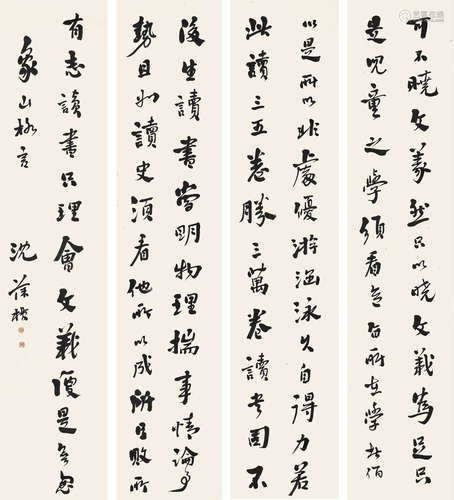 可不曉文義然只以曉文義為足只
是兒童之學須看意旨所在學者
以是所以非處優游涵泳久自得力若
此讀三五卷勝三萬卷讀書固不
後生讀書當明物理揣事情論事
勢且如讀史須看他所以成所以敗所
有志讀書只理會文義便是無志
象山格言
沈葆楨